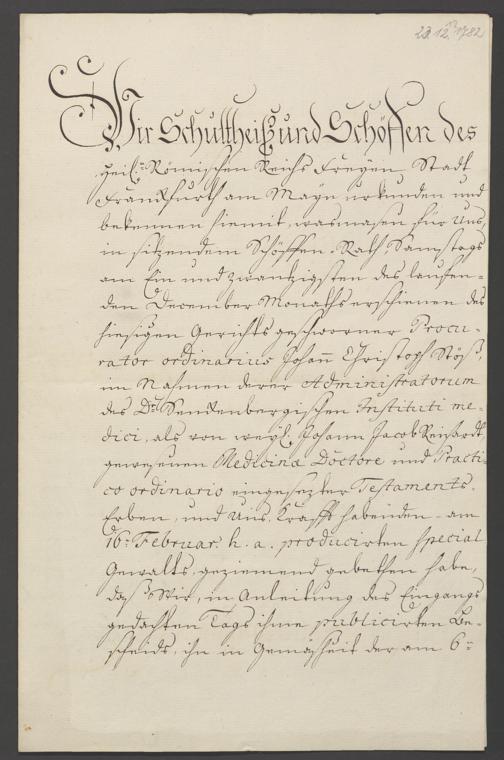 23. 12. 1782
Wir Schultheiß und Schöffen des
Heil. Römischen Reichs Freyen Stadt
Franckfurth am Mayn urkunden und
bekennen hiemit, wasmasen für Uns,
in sitzendem Schöffen-Rath, Samstags
am Ein und zwantzigsten des laufen-
den December Monaths erschienen der
hiesigen Gerichts geschworner Procu-
rator ordinarius Johann Christoph Stöß,
im Nahmen derer Administratorum
des Dr. Senckenbergischen Instituti me-
dici, als von weyl. Johann Jacob Reichardt
gewesenen Medicina Doctore und Practi-
co ordinario eingesezter Testaments-
Erben, und Uns, Krafft habenden am
16. Februar. h. a. producirten special
Gewalts, geziemend gebethen habe,
daß Wir, in Anleitung des Eingangs
gedachten Tags ihme publicirten Be-
scheids, ihn in Gemäßheit der am 6.